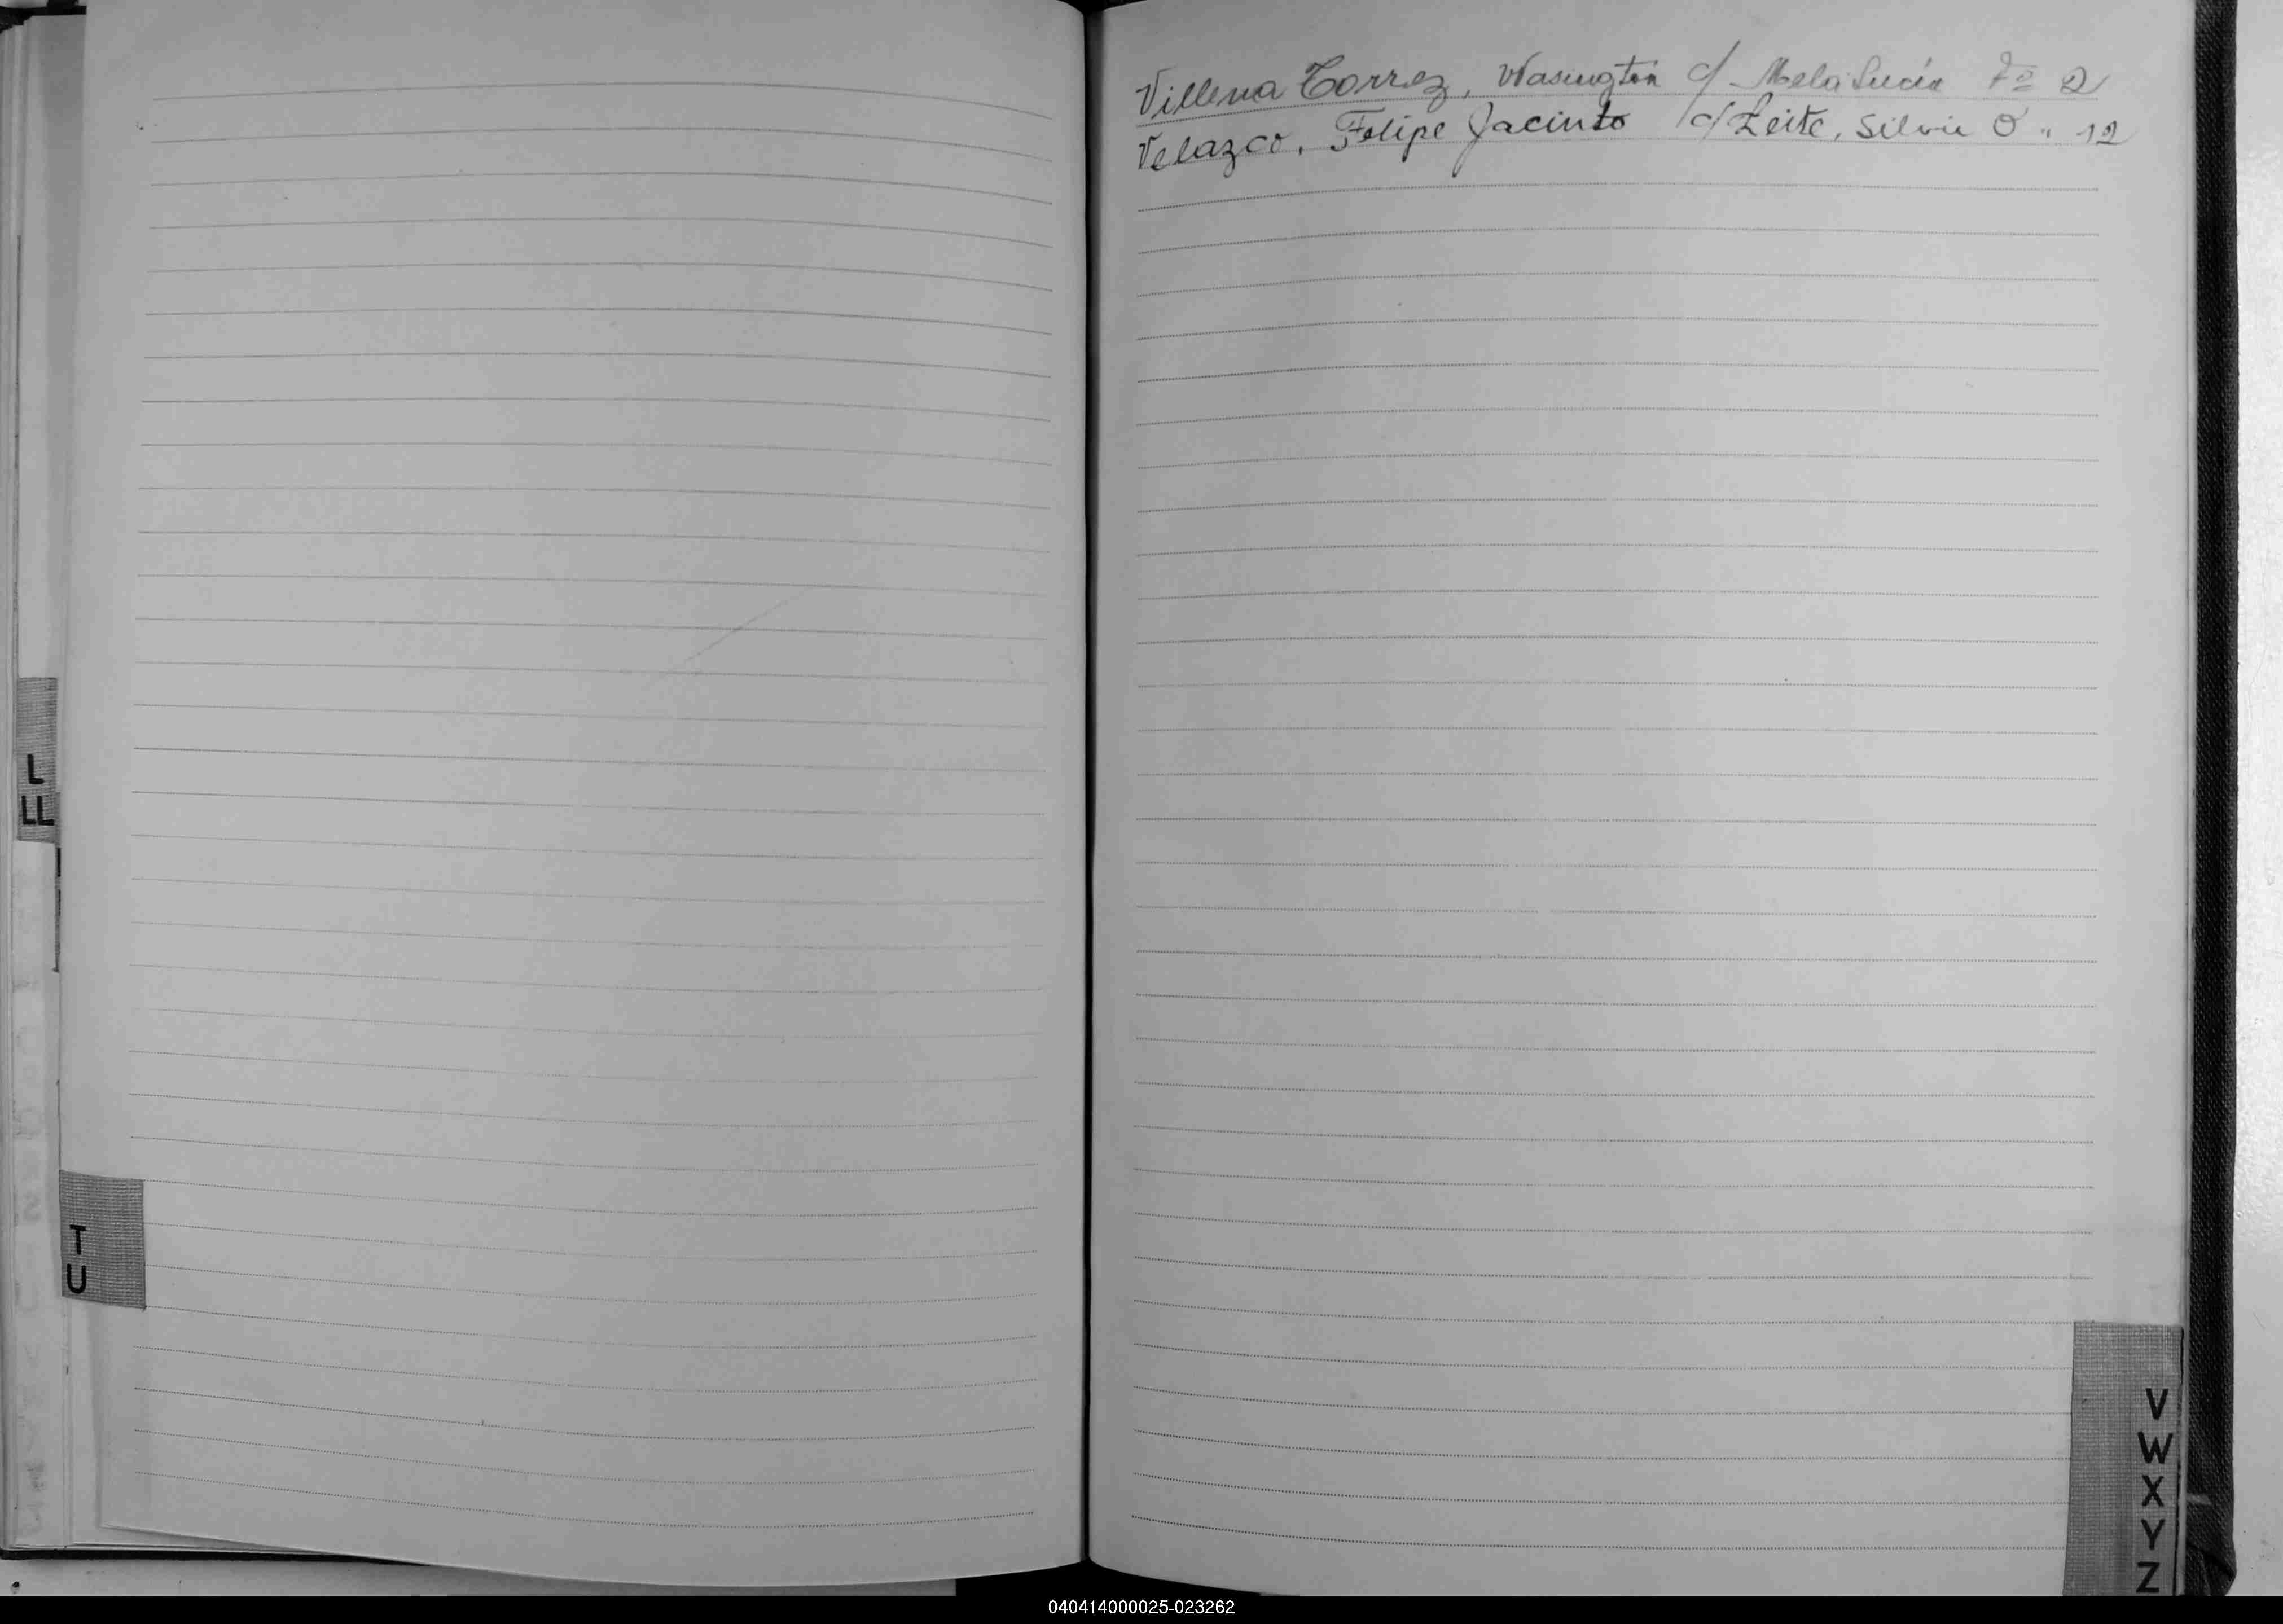 Villena Torrez, Wasington c/ Mela Lucia Fº 2
Velazco, Felipe Jacinto c/ Leite, Silvia O " 12
L
LL
T
U
V
W
X
Y
Z
040414000025-023262